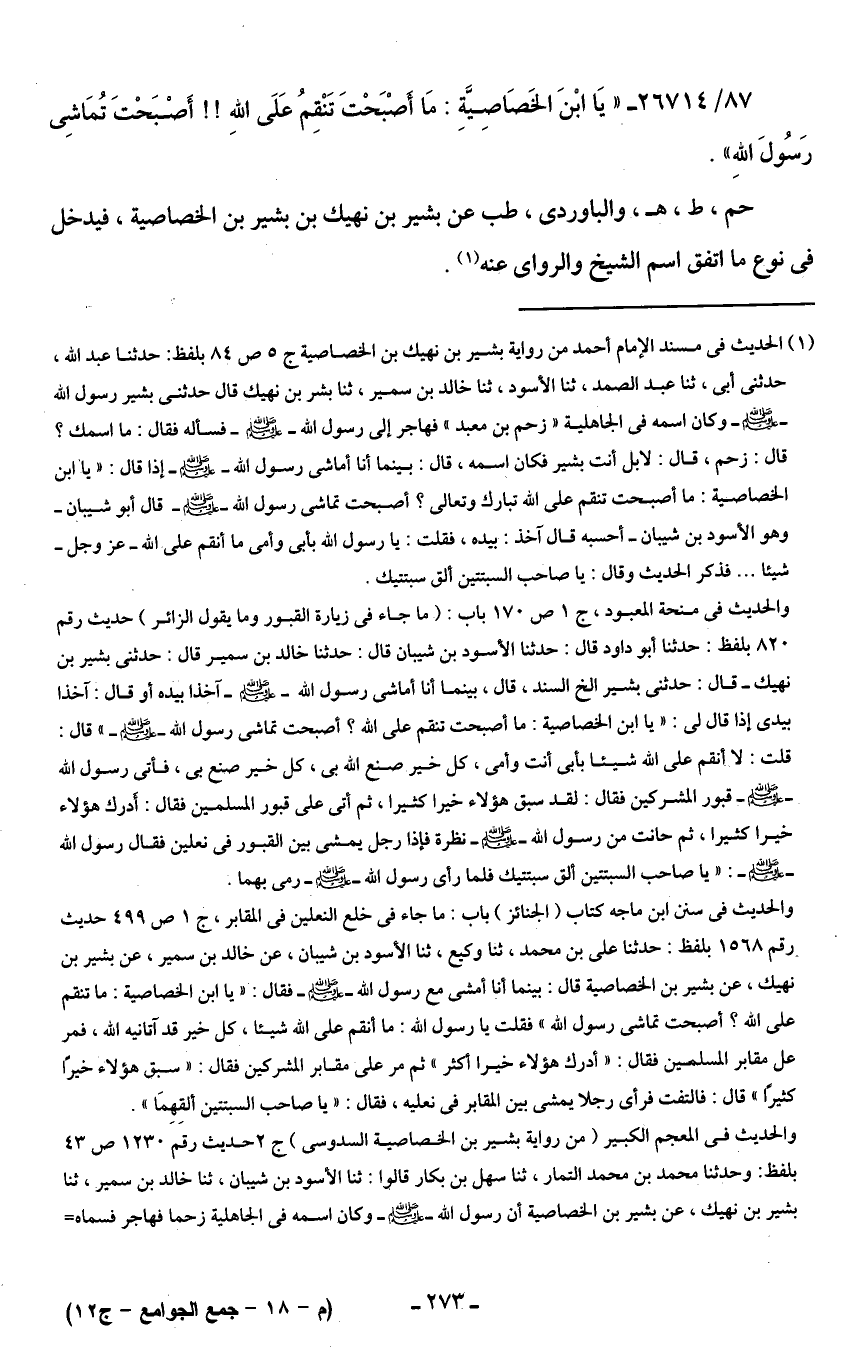 ٢٦٧١٤/٨٧ـ « يَا ابْنَ الخَصَاصِيَّةِ : مَا أَصْبَحْتَ تَنْقِمُ عَلَى اللهِ !! أَصْبَحْتَ تُمَاشِى
رَسُولَ اللهِ» .
حم ، ط ، هـ ، والباوردى ، طب عن بشير بن نهيك بن بشير بن الخصاصية ، فيدخل
فى نوع ما اتفق اسم الشيخ والرواى عنه(١) .
(١) الحديث فى مسند الإمام أحمد من رواية بشير بن نهيك بن الخصاصية ج ٥ ص ٨٤ بلفظ: حدثنا عبد الله ،
حدثنى أبى ، ثنا عبد الصمد ، ثنا الأسود ، ثنا خالد بن سمير ، ثنا بشر بن نهيك قال حدثنى بشير رسول الله
ـ ﷺ ـ وكان اسمه فى الجاهلية « زحم بن معبد » فهاجر إلى رسول الله ـ ﷺ ـ فسأله فقال : ما اسمك ؟
قال : زحم ، قال : لابل أنت بشير فكان اسمه ، قال : بينما أنا أماشى رسول الله ـ ﷺ ـ إذا قال : « يا ابن
الخصاصية : ما أصبحت تنقم على الله تبارك وتعالى ؟ أصبحت تماشى رسول الله ـ ﷺ ـ قال أبو شيبان ـ
وهو الأسود بن شيبان ـ أحسبه قال آخذ : بيده ، فقلت : يا رسول الله بأبى وأمى ما أنقم على الله ـ عز وجل ـ
شيئا ... فذكر الحديث وقال : يا صاحب السبتتين ألق سبتتيك .
والحديث فى منحة المعبود ، ج ١ ص ١٧٠ باب : ( ما جاء فى زيارة القبور وما يقول الزائر ) حديث رقم
٨٢٠ بلفظ : حدثنا أبو داود قال : حدثنا الأسود بن شيبان قال : حدثنا خالد بن سمير قال : حدثنى بشير بن
نهيك ـ قال : حدثنى بشير الخ السند ، قال ، بينما أنا أماشى رسول الله ـ ﷺ ـ آخذا بيده أو قال : آخذا
بيدى إذا قال لى : « يا ابن الخصاصية : ما أصبحت تنقم على الله ؟ أصبحت تماشى رسول الله ـ ﷺ ـ » قال :
قلت : لا أنقم على الله شيئا بأبى أنت وأمى ، كل خير صنع الله بى ، كل خير صنع بى ، فأتى رسول الله
ـ ﷺ ـ قبور المشركين فقال : لقد سبق هؤلاء خيرا كثيرا ، ثم أتى على قبور المسلمين فقال : أدرك هؤلاء
خيرا كثيرا ، ثم حانت من رسول الله ـ ﷺ ـ نظرة فإذا رجل يمشى بين القبور فى نعلين فقال رسول الله
ـ ﷺ ـ : « يا صاحب السبتتين ألق سبتتيك فلما رأى رسول الله ـ ﷺ ـ رمى بهما .
والحديث فى سنن ابن ماجه كتاب ( الجنائز ) باب : ما جاء فى خلع النعلين فى المقابر ، ج ١ ص ٤٩٩ حديث
رقم ١٥٦٨ بلفظ : حدثنا على بن محمد ، ثنا وكيع ، ثنا الأسود بن شيبان ، عن خالد بن سمير ، عن بشير بن
نهيك ، عن بشير بن الخصاصية قال : بينما أنا أمشى مع رسول الله ـ ﷺ ـ فقال : « يا ابن الخصاصية : ما تنقم
على الله ؟ أصبحت تماشى رسول الله » فقلت يا رسول الله : ما أنقم على الله شيئا ، كل خير قد آتانيه الله ، فمر
عل مقابر المسلمين فقال : « أدرك هؤلاء خيرا أكثر » ثم مر على مقابر المشركين فقال : « سبق هؤلاء خيرًا
كثيرًا » قال : فالتفت فرأى رجلا يمشى بين المقابر فى نعليه ، فقال : « يا صاحب السبتتين ألقِهِمَا » .
والحديث فى المعجم الكبير ( من رواية بشير بن الخصاصية السدوسى ) ج ٢ حديث رقم ١٢٣٠ ص ٤٣
بلفظ: وحدثنا محمد بن محمد التمار ، ثنا سهل بن بكار قالوا : ثنا الأسود بن شيبان ، ثنا خالد بن سمير ، ثنا
بشير بن نهيك ، عن بشير بن الخصاصية أن رسول الله ـ ﷺ ـ وكان اسمه فى الجاهلية زحما فهاجر فسماه=
ـ ٢٧٣ ـ
(م - ١٨ - جمع الجوامع - ج١٢)